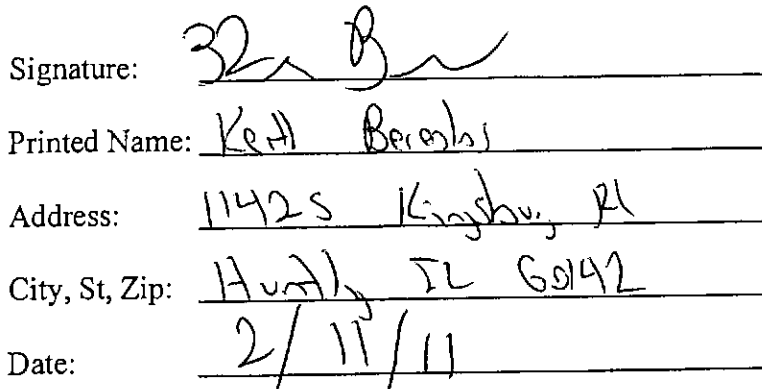 Signature:
Printed Name: Keith
Address: 11425 Kingsbury Rd
City, St, Zip: Huntley IL 60142
Date: 2/11/11